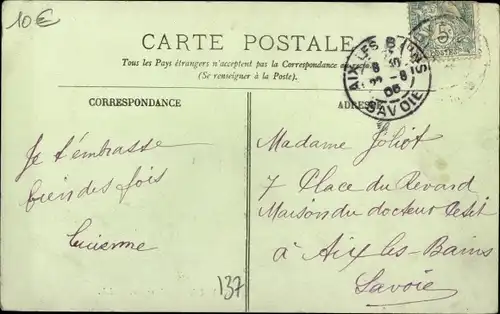 10€
CARTE POSTALE
Tous les Pays étrangers n'acceptent pas la Correspondance au
(Se renseigner à la Poste).
CORRESPONDANCE
ADRESSE
AIX LES BAINS
8 30
22 - 8
06
SAVOIE
5
POSTES
Je t'embrasse
bien des fois
Lucienne
137
Madame Joliot
7 Place du Revard
Maison du docteur Petit
à Aix les-Bains
Savoie